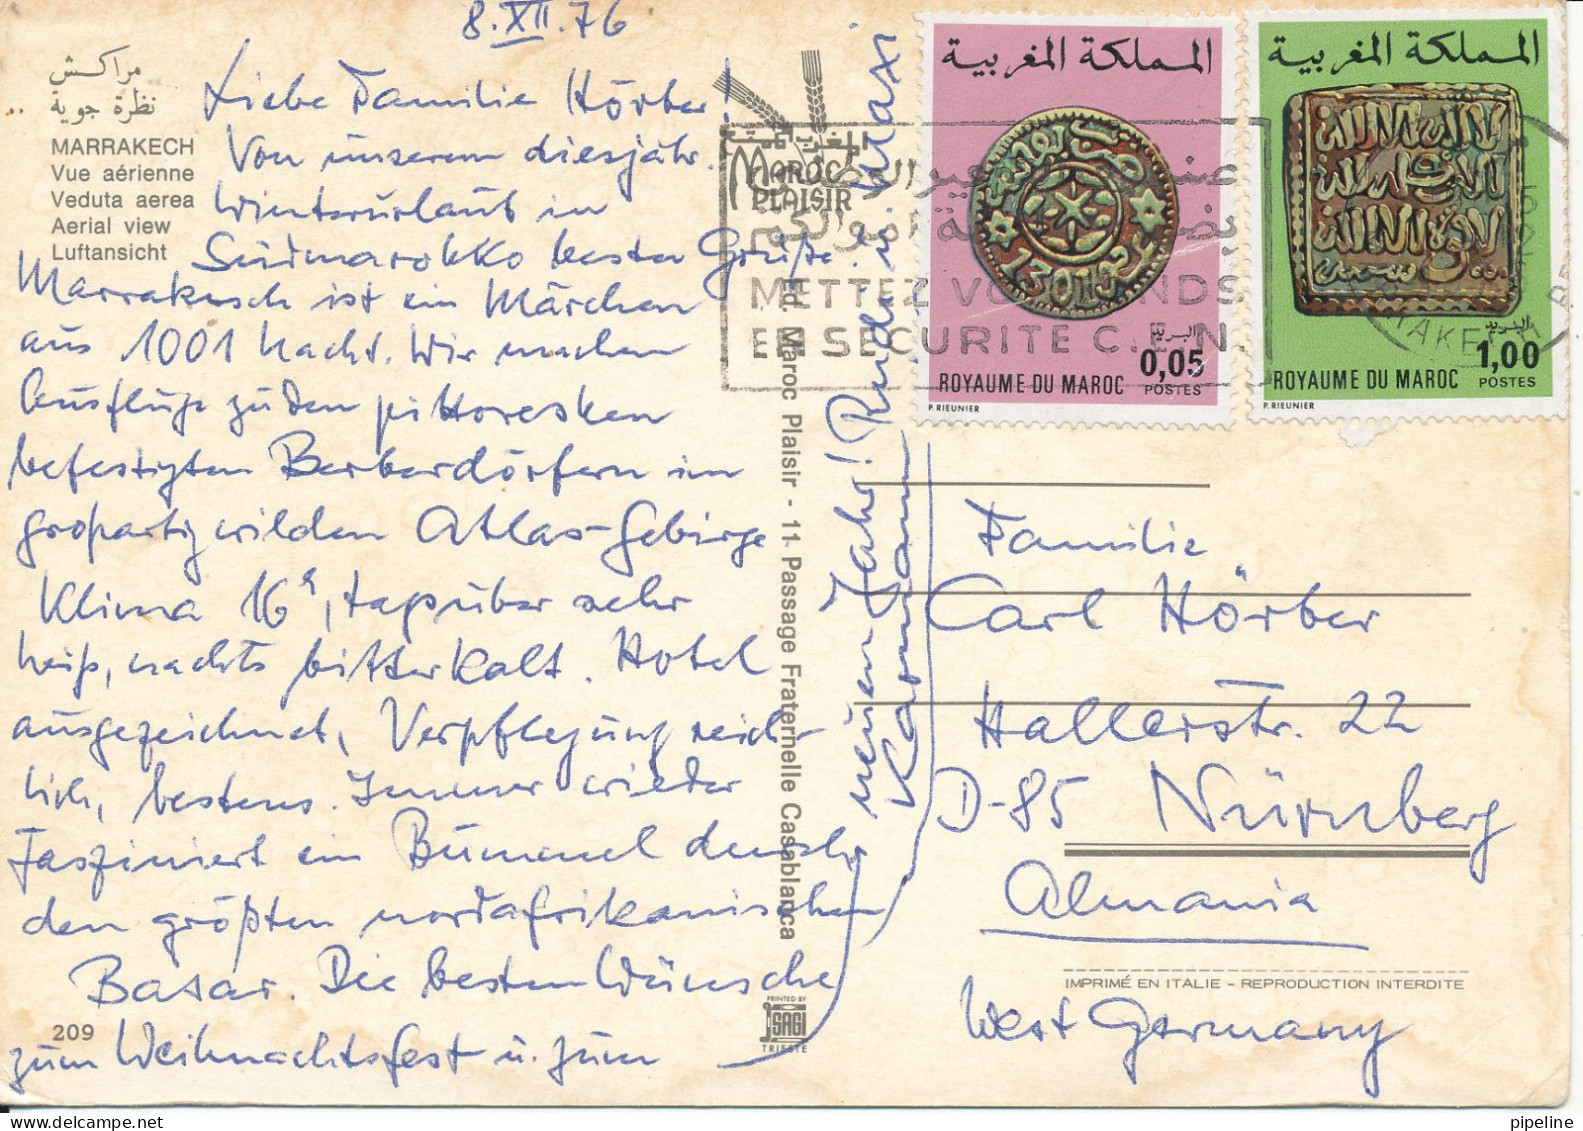 8.XII.76
مراكش
نظرة جوية
MARRAKECH
Vue aérienne
Veduta aerea
Aerial view
Luftansicht
Liebe Familie Hörber!
Von unserem diesjähr.
Winterurlaub in
Südmarokko beste Grüße.
Marrakesch ist ein Märchen
aus 1001 Nacht. Wir machen
Ausflüge zu den pittoresken
befestigten Berberdörfern im
großartig wilden Atlas-Gebirge
Klima 16°, tagsüber sehr
heiß, nachts bitterkalt. Hotel
ausgezeichnet, Verpflegung reich-
lich, bestens. Immer wieder
fasziniert ein Bummel durch
den größten nordafrikanischen
Basar. Die besten Wünsche
zum Weihnachtsfest u. zum
neuen Jahr! Rudi u. Maxi
209
Ed. Maroc Plaisir - 11 Passage Fraternelle Casablanca
PRINTED BY
SAGI
TRIESTE
المغرب متعة
MAROC
PLAISIR
METTEZ VOS FONDS
EN SECURITE C.E.N.
المملكة المغربية
1301
البريد
0,05
ROYAUME DU MAROC POSTES
P. RIEUNIER
المملكة المغربية
البريد
1,00
ROYAUME DU MAROC POSTES
P. RIEUNIER
Familie
Carl Hörber
Hallerstr. 22
D-85 Nürnberg
Almania
West Germany
IMPRIMÉ EN ITALIE - REPRODUCTION INTERDITE
pipeline